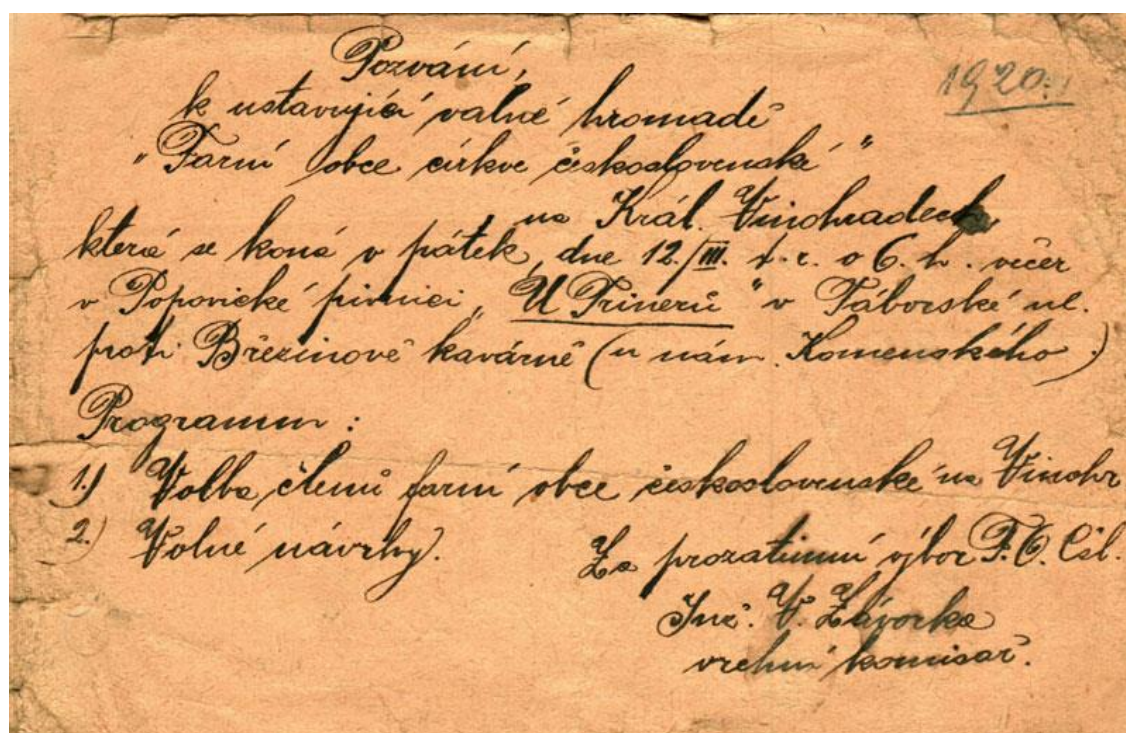 Pozvání,
1920.
k ustavující valné hromadě
"Farní obce církve československé"
na Král. Vinohradech,
která se koná v pátek, dne 12./III. t. r. o 6. h. večer
v Popovické pivnici „U Trinerů" v Táborské ul.
proti Březinově kavárně (u nám. Komenského.)
Programm:
1.) Volba členů farní obce československé na Vinohr
2.) Volné návrhy.
Za prozatimní výbor F.O. Čsl.
Inž. V. Závorka
vrchní komisař.